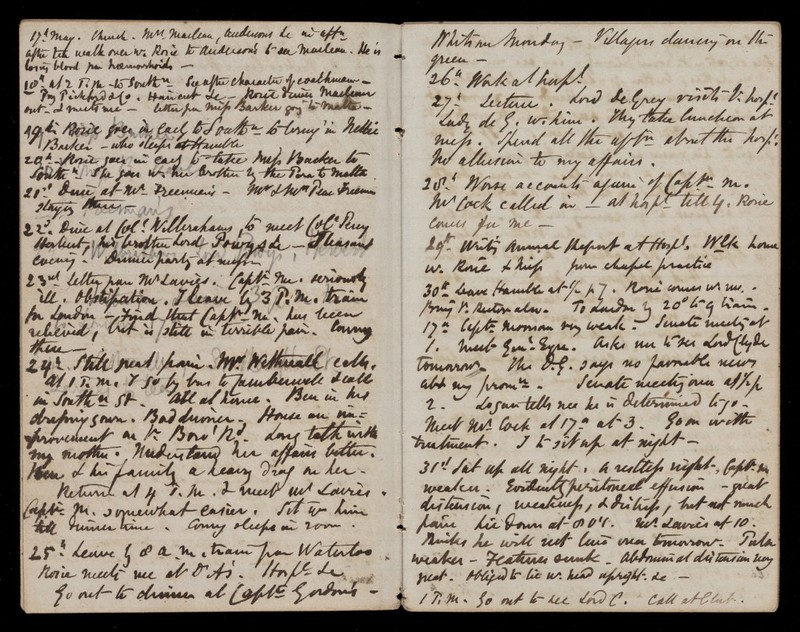 17th May. Church. Mrs. Maclean, Andersons &c in aftn
after tea walk over w. Rosie to Anderson's to see Maclean. He is
losing blood from haemorrhoids —
18th at 2 P.M. to Southn. See after character of coachman —
Pay Pickford & Co. Haircut &c — Rosie
out & meets me — letter from Miss Barker going to Malta —
19th Rosie goes in early to Southn to bring in Nellie
Barker — who sleeps at Hamble
20th Rosie goes in early to take Miss Barker to
Southn. She goes w. her brother by the Pera to Malta.
21st Dine at Mr. Freeman's — Mr & Mrs Freeman
staying there
22d. Dine at Col. Wilbraham's to meet Col. Percy
Herbert, his brother Lord Powys &c — Pleasant
evening. Dinner party at mess
23rd Letter from Mr Davies. Captn Mc. seriously
ill. Obstipation. I leave by 3 P.M. train
for London — find that Captn Mc. has been
relieved, but is still in terrible pain. Conny
there —
24th Still great pain. Mr. Wetherall calls.
at 1 P.M. I go by bus to Camberwell & call
in South St. All at home. Ben in his
dressing gown. Bad dinner. House an im-
provement on the Boro' Rd. Long talk with
my mother. Understand her affairs better.
Ben & his family a heavy drag on her —
Return at 4 P.M. & meet Mr Davies.
Captn Mc. somewhat easier. Sit w. him
till dinner time. Conny sleeps in room.
25th Leave by 8 A.M. train from Waterloo
Rosie meets me at Dr A's. Hospl &c
Go out to dinner at Captn Gordon's —
Whitsun Monday — Villagers dancing on the
green —
26th Work at hospl.
27th Lecture. Lord de Grey visits the hospl.
Lady de G. w. him. They take luncheon at
mess. Spend all the aftn about the hospl.
No allusion to my affairs.
28th Worse accounts again of Captn Mc.
Mr Cock called in — at hospl till 4. Rosie
comes for me —
29th Write Annual Report at Hospl. Walk home
w. Rosie & Miss from chapel practice
30th Leave Hamble at 1/4 p 7. Rosie comes w. me.
To London by 20 to 9 train.
17th Captn Morrison very weak — Senate meeting at
1. Meet Genl. Eyre. Asks me to see Lord Clyde
tomorrow. The D.G. says no favorable news
abt my promn. Senate meeting over at 1/2 p
2. Logan tells me he is determined to go.
Meet Mr. Cock at 17th at 3. Go on with
treatment. I to sit up at night —
31st Sat up all night. A restless night. Captn Mc
weaker. Evidently peritoneal effusion — great
distension, weakness, & distress, but not much
pain. Lie down at 8 o'c. Mr. Davies at 10.
Thinks he will not live over tomorrow. Pulse
weaker — Features sunk. Abdominal distension very
great. Obliged to lie w. head upright. &c —
1 P.M. Go out to see Lord C. Call at Club.